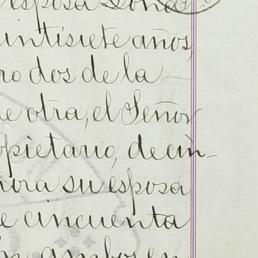 esposa Doña
eintisiete años,
ro dos de la
e otra, el Señor
opietario, de cin-
ñora su esposa
e cincuenta
ambos en